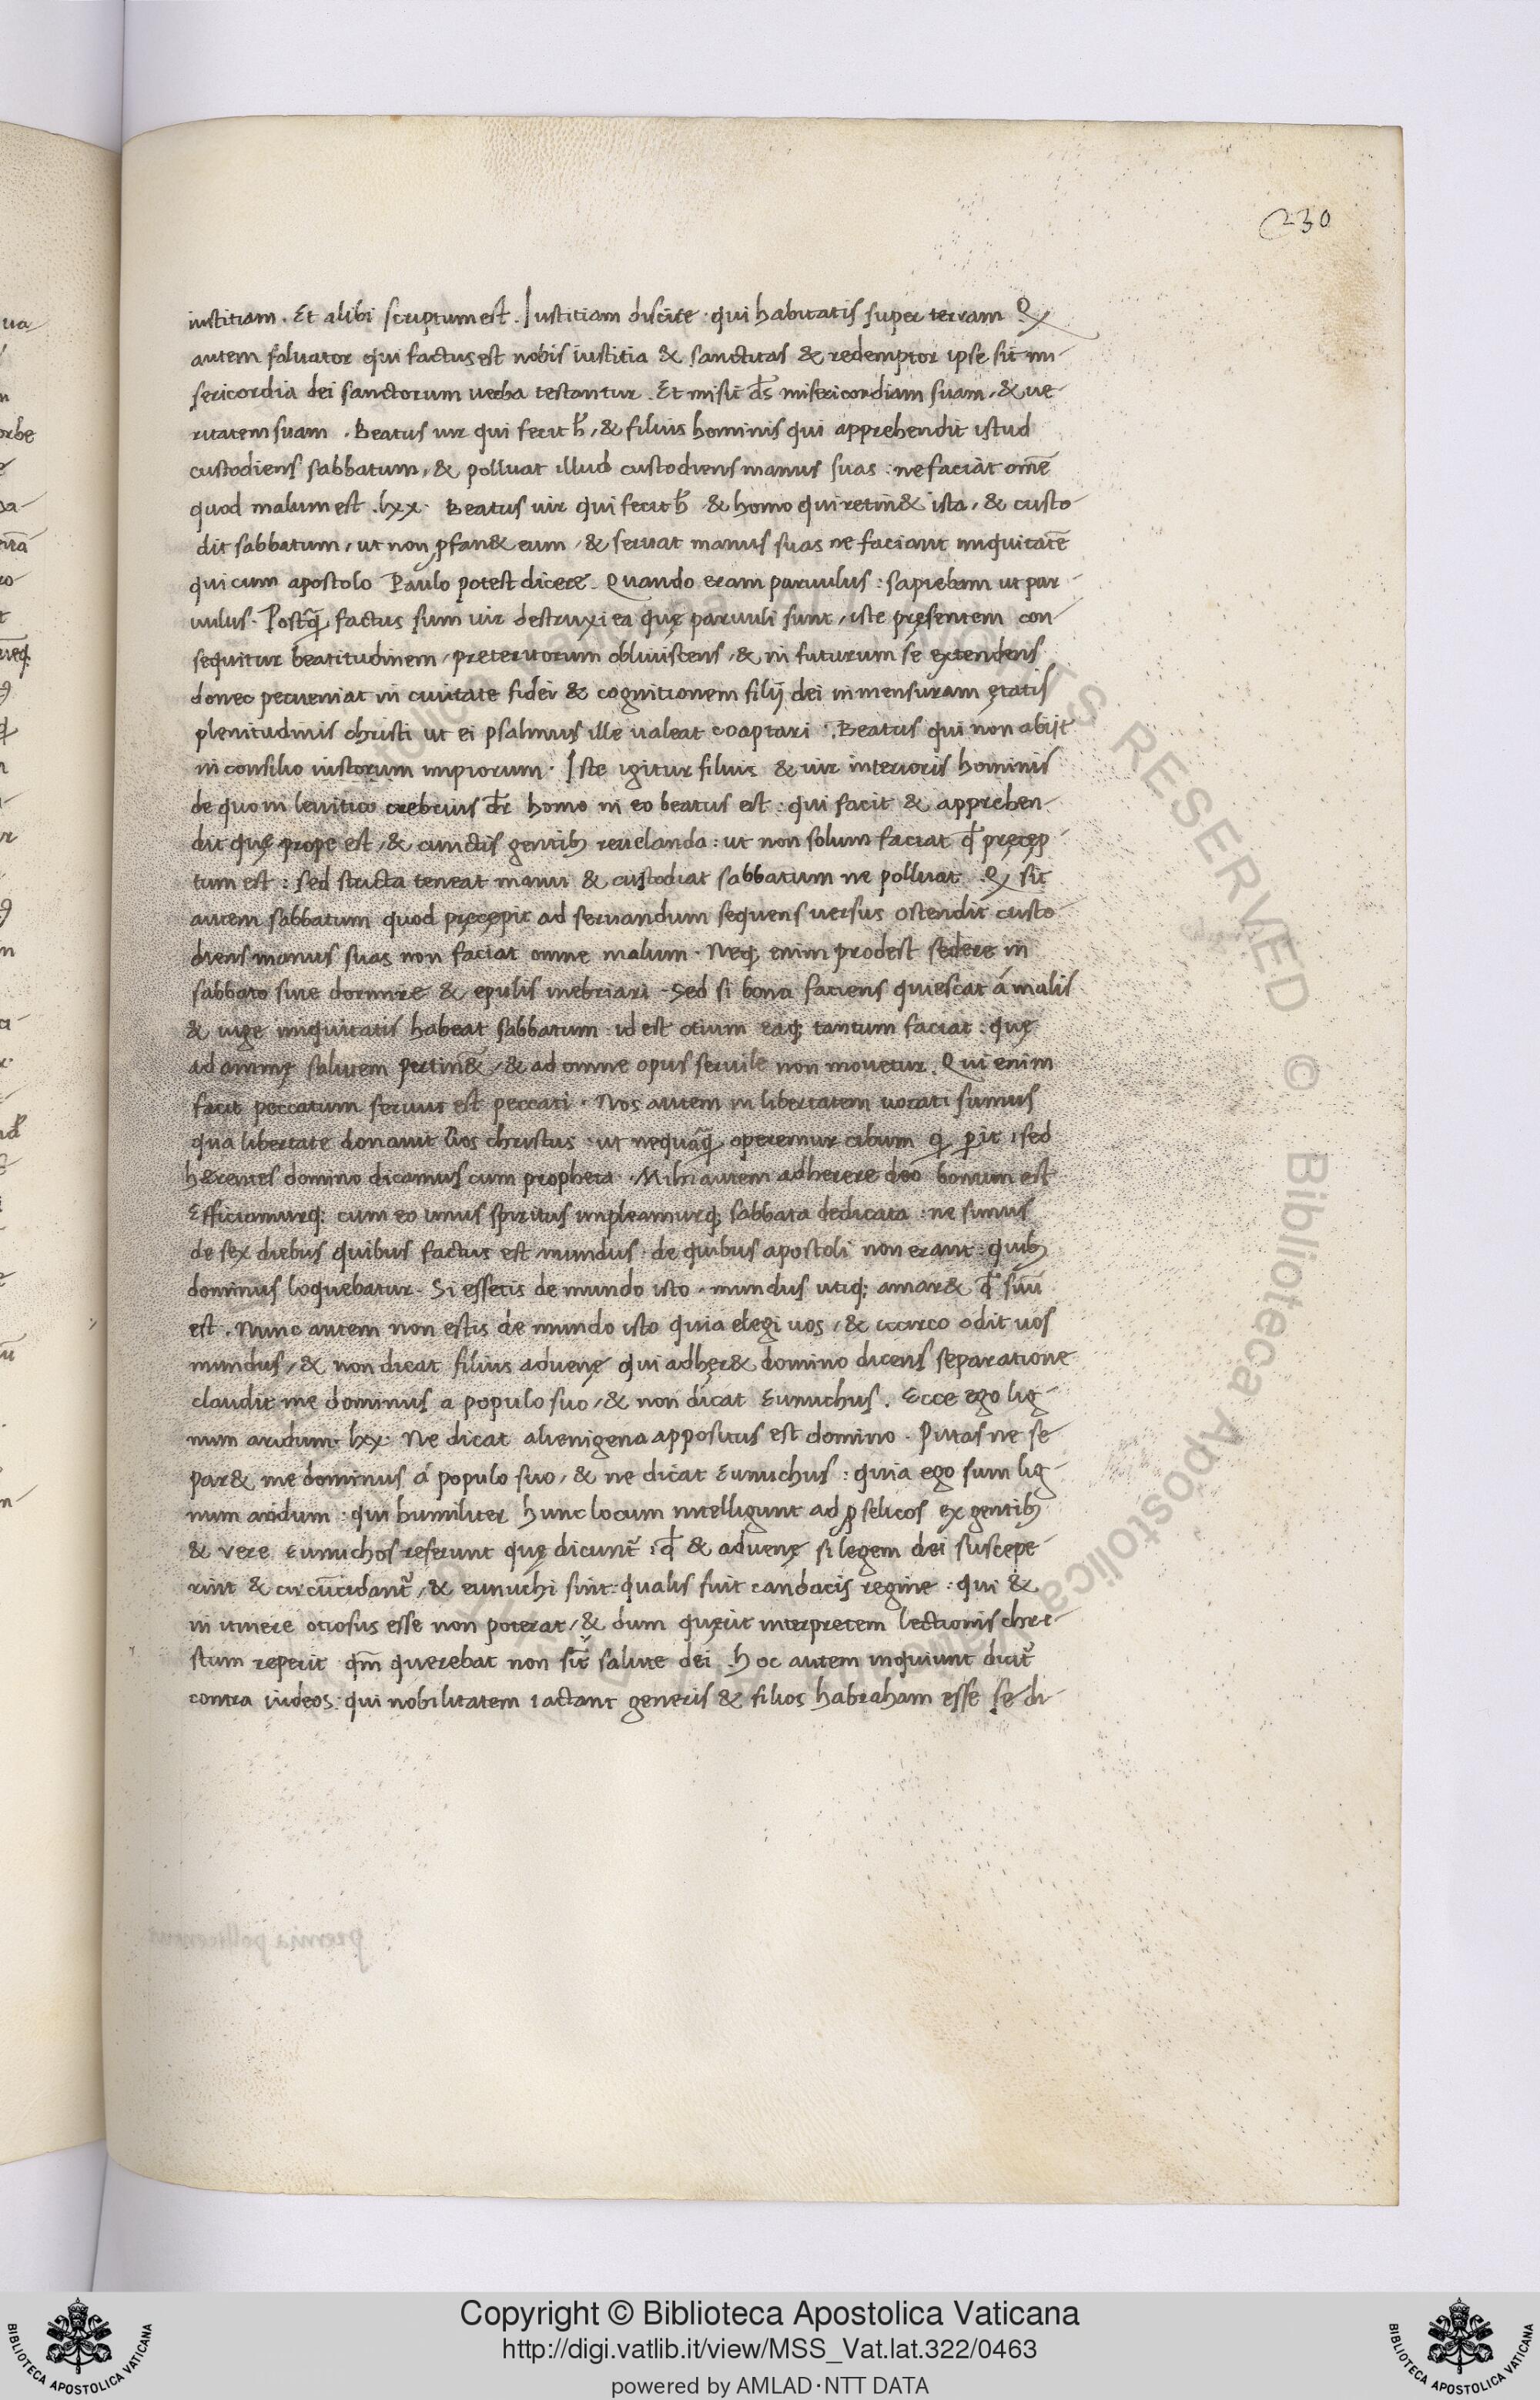 230
iustitiam. Et alibi scriptum est. Iustitiam discite: qui habitatis super terram Qͅ
autem saluator qui factus est nobis iustitia & sanctitas & redemptor ipse sit mi-
sericordia dei sanctorum verba testantur. Et misit ds̄ misericordiam suam, & ue-
ritatem suam. Beatus uir qui fecit h̄, & filius hominis qui apprehendit istud
custodiens sabbatum, & polluat illud custodiens manus suas: ne faciat om̄e
quod malum est. lxx. Beatus uir qui fecit h̄ & homo qui retin& ista, & custo
dit sabbatum, ut non ꝓfan& eum, & seruat manus suas ne faciant iniquitatē
qui cum apostolo Paulo potest dicere. Quando eram paruulus: sapiebam ut par-
uulus. Postq̄ factus sum uir destruxi ea quę paruuli sunt, iste pręsentem con-
sequitur beatitudinem, preteritorum obliuiscens, & in futurum se extendens
donec perueniat in ciuitate fidei & cognitionem filij dei in mensuram ętatis
plenitudinis christi ut ei psalmus ille ualeat coaptari. Beatus qui non abijt
in consilio iustorum impiorum. Iste igitur filius & uir interioris hominis
de quo in leuitico crebrius dr̄ homo in eo beatus est: qui facit & apprehen-
dit quę prope est, & cunctis gentib; reuelanda: ut non solum faciat qđ pręcep
tum est: sed stricta teneat manu & custodiat sabbatum ne polluat. Qͅ sit
autem sabbatum quod pręcepit ad seruandum sequens uersus ostendit custo
diens manus suas non faciat omne malum. Neq; enim prodest sedere in
sabbato siue dormire & epulis inebriari. Sed si bona faciens quiescat á malis
& iuge iniquitatis habeat sabbatum id est otium eaq; tantum faciat: quę
ad animę salutem pertin&, & ad omne opus seruile non mouetur. Qui enim
facit peccatum seruus est peccati. Nos autem in libertatem uocati sumus
qua libertate donauit nos christus: ut nequaq̄ operemur cibum q ꝑit, sed
h&rentes domino dicamus cum propheta. Mihi autem adherere deo bonum est
Efficiamurq; cum eo unus spiritus impleamurq; sabbata dedicata: ne simus
de sex diebus quibus factus est mundus. de quibus apostoli non erant: quib;
dominus loquebatur. Si essetis de mundo isto, mundus utiq; amar& qđ suū
est. Nunc autem non estis de mundo isto quia elegi uos, & iccirco odit uos
mundus, & non dicat filius aduenę qui adhęr& domino dicens separatione
claudit me dominus a populo suo, & non dicat Eunuchus. Ecce ego lig-
num aridum. lxx. Ne dicat alienigena appositus est domino. Putasne se
par& me dominus á populo suo, & ne dicat Eunuchus: quia ego sum lig-
num aridum: qui humiliter hunc locum intelligunt ad ꝓselitos ex gentib;
& vere Eunuchos referunt quę dicunt̄: qđ & aduenę si legem dei suscepe-
rint & circūcidant̄, & eunuchi sint: qualis fuit candacis regine: qui &
in itinere otiosus esse non poterat, & dum quęrit interpretem lectionis chri-
stum reperit qm̄ querebat non sit̄ salute dei. Hoc autem inquiunt dicit̄
contra iudeos: qui nobilitatem iactant generis & filios habraham esse se di-
Copyright © Biblioteca Apostolica Vaticana
http://digi.vatlib.it/view/MSS_Vat.lat.322/0463
powered by AMLAD·NTT DATA
BIBLIOTECA APOSTOLICA VATICANA
BIBLIOTECA APOSTOLICA VATICANA